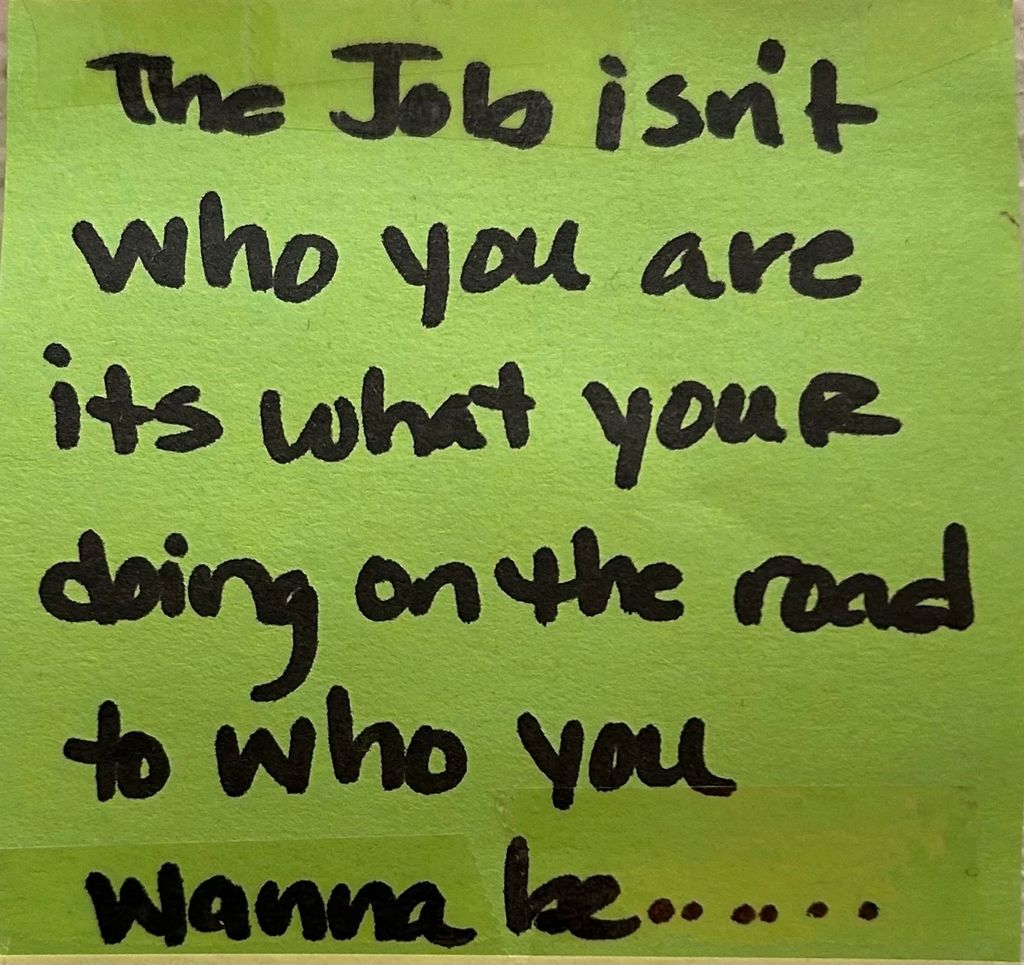 The Job isn't
who you are
its what your
doing on the road
to who you
wanna be......